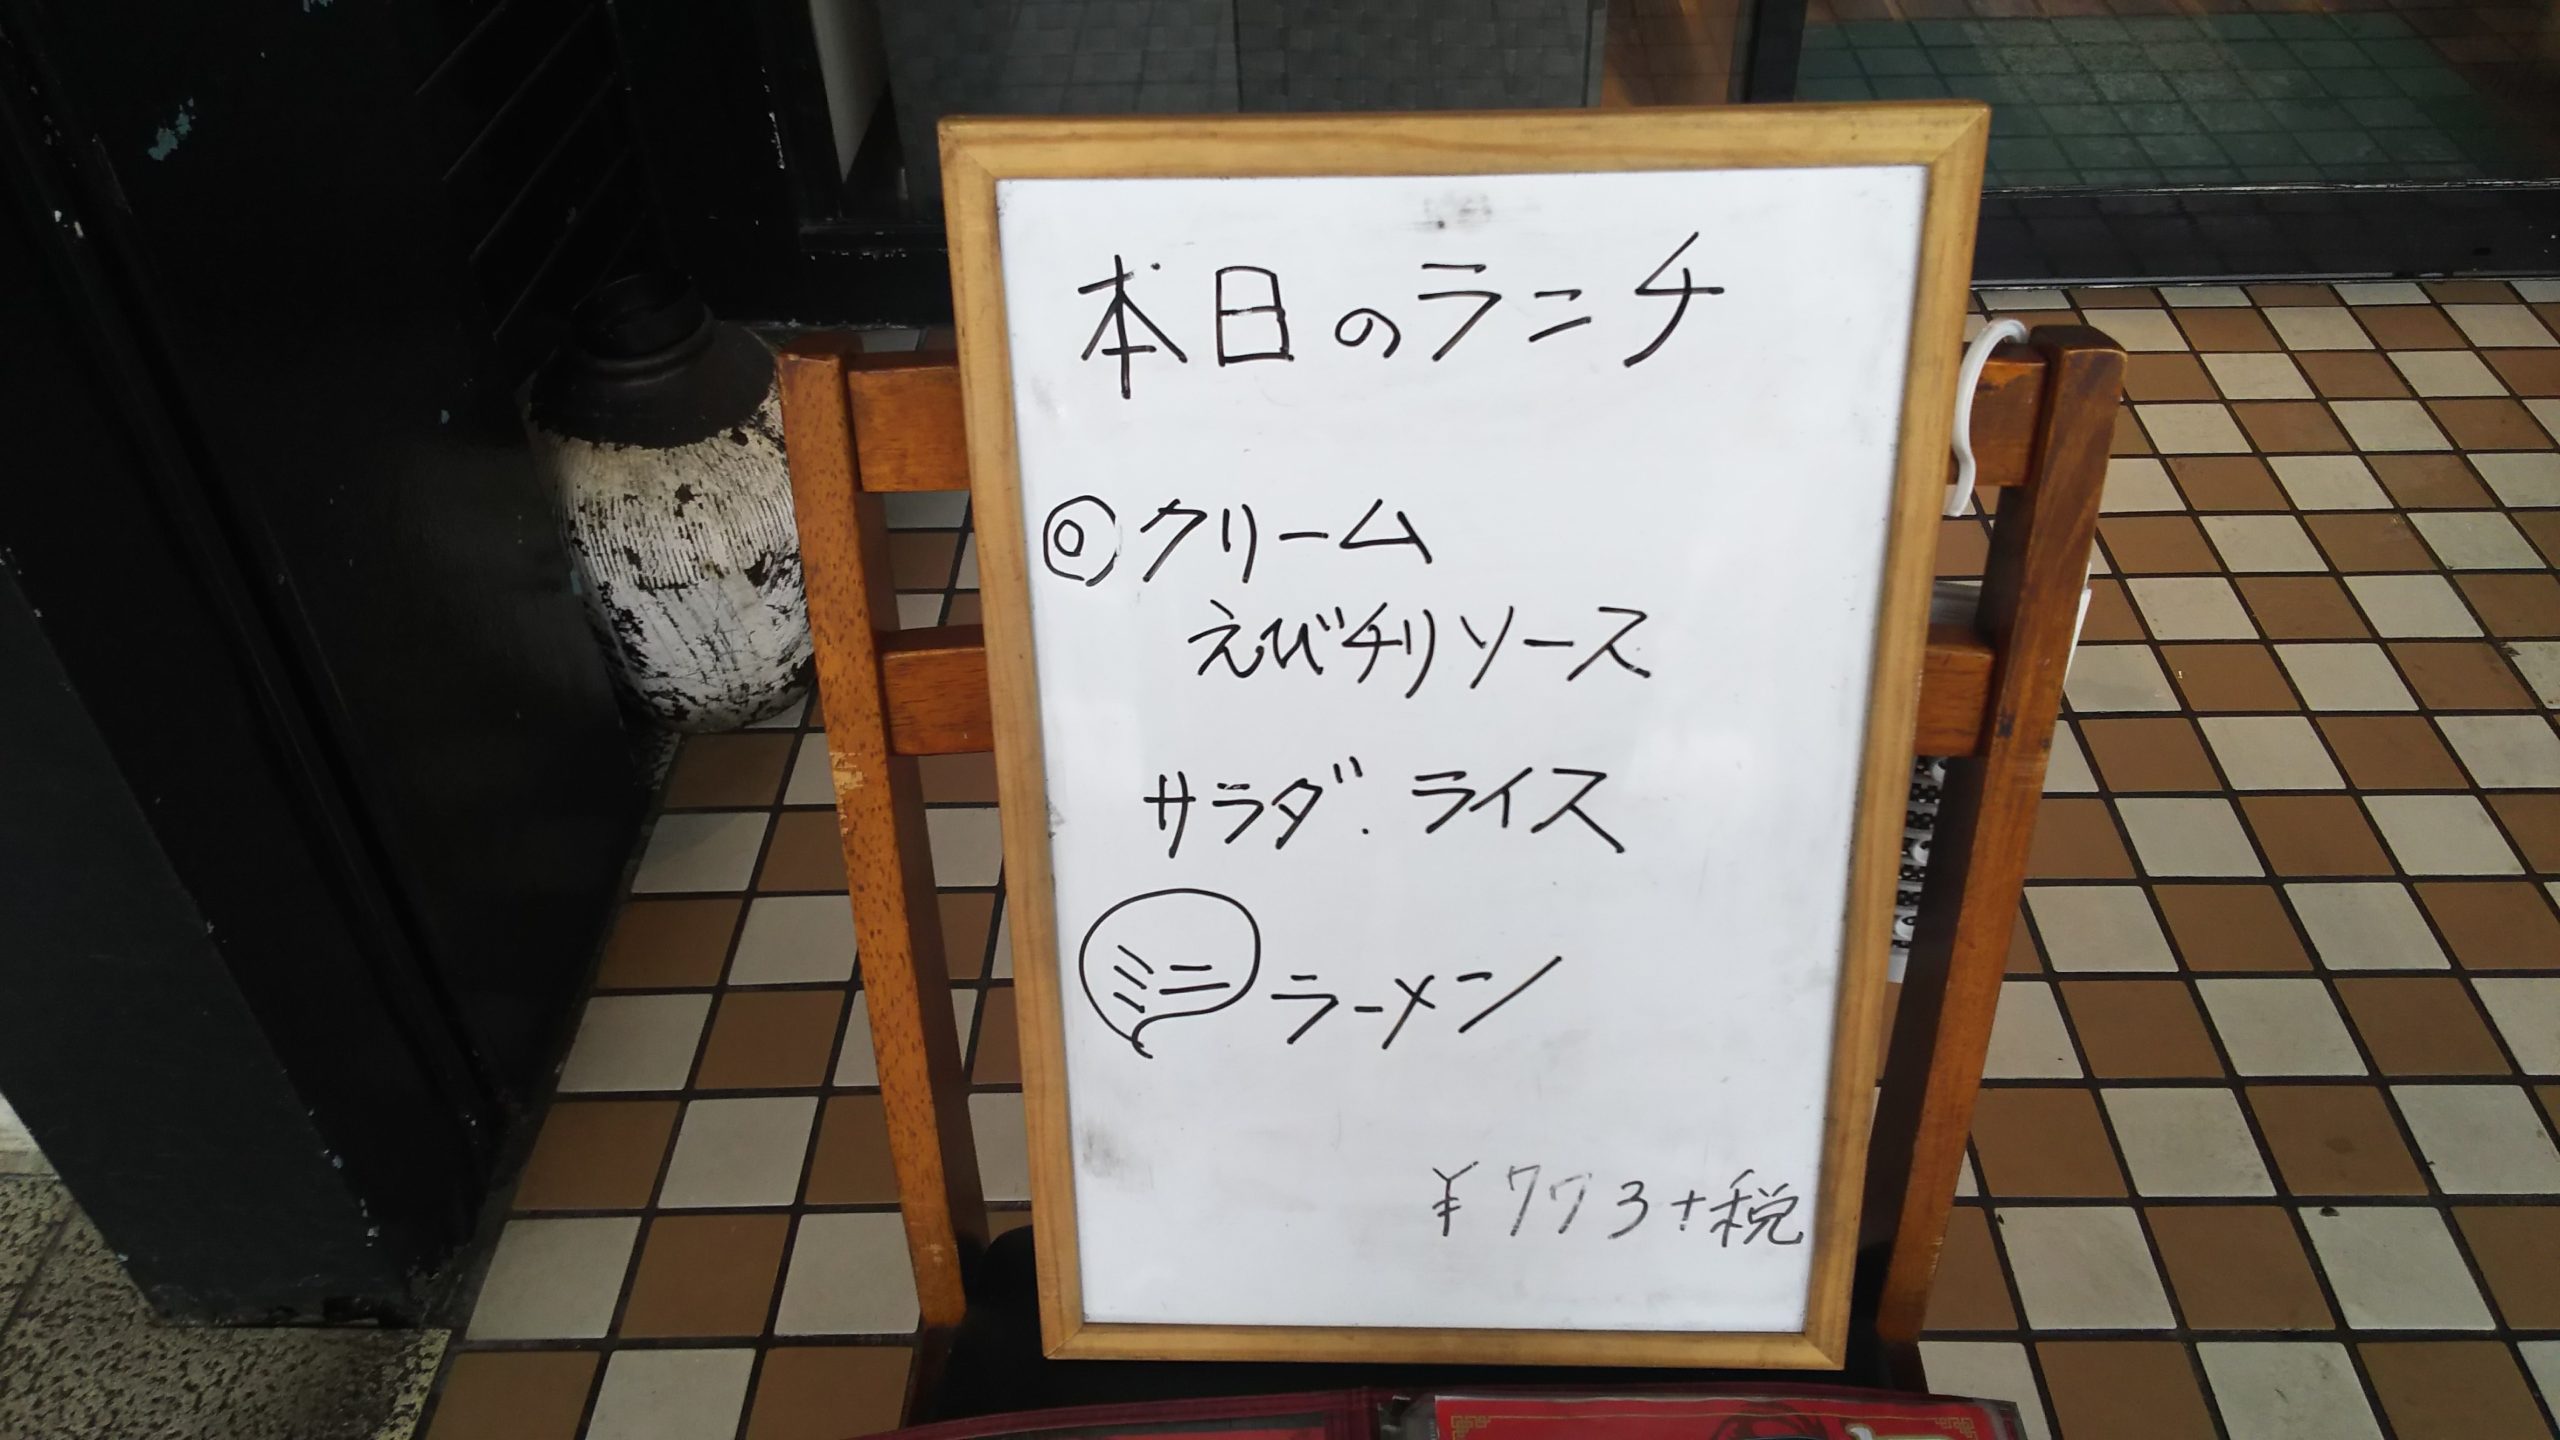 本日のランチ
◎クリーム
えびチリソース
サラダ.ライス
ミニラーメン
¥773+税